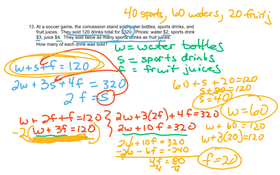 40 sports, 60 waters, 20 fruit
13. At a soccer game, the concession stand sold water bottles, sports drinks, and
fruit juices. They sold 120 drinks total for $320. Prices: water $2, sports drink
$3, juice $4. They sold twice as many sports drinks as fruit juices.
How many of each drink was sold?
w = water bottles
s = sports drinks
f = fruit juices
w + s + f = 120
2w + 3s + 4f = 320
2f = s
60 + s + 20 = 120
s + 80 = 120
s = 40
w = 60
w + 2f + f = 120
-2(w + 3f = 120)
2w + 3(2f) + 4f = 320
2w + 10f = 320
2w + 10f = 320
-2w - 6f = -240
4f = 80
4 4
w + 60 = 120
w + 3(20) = 120
f = 20